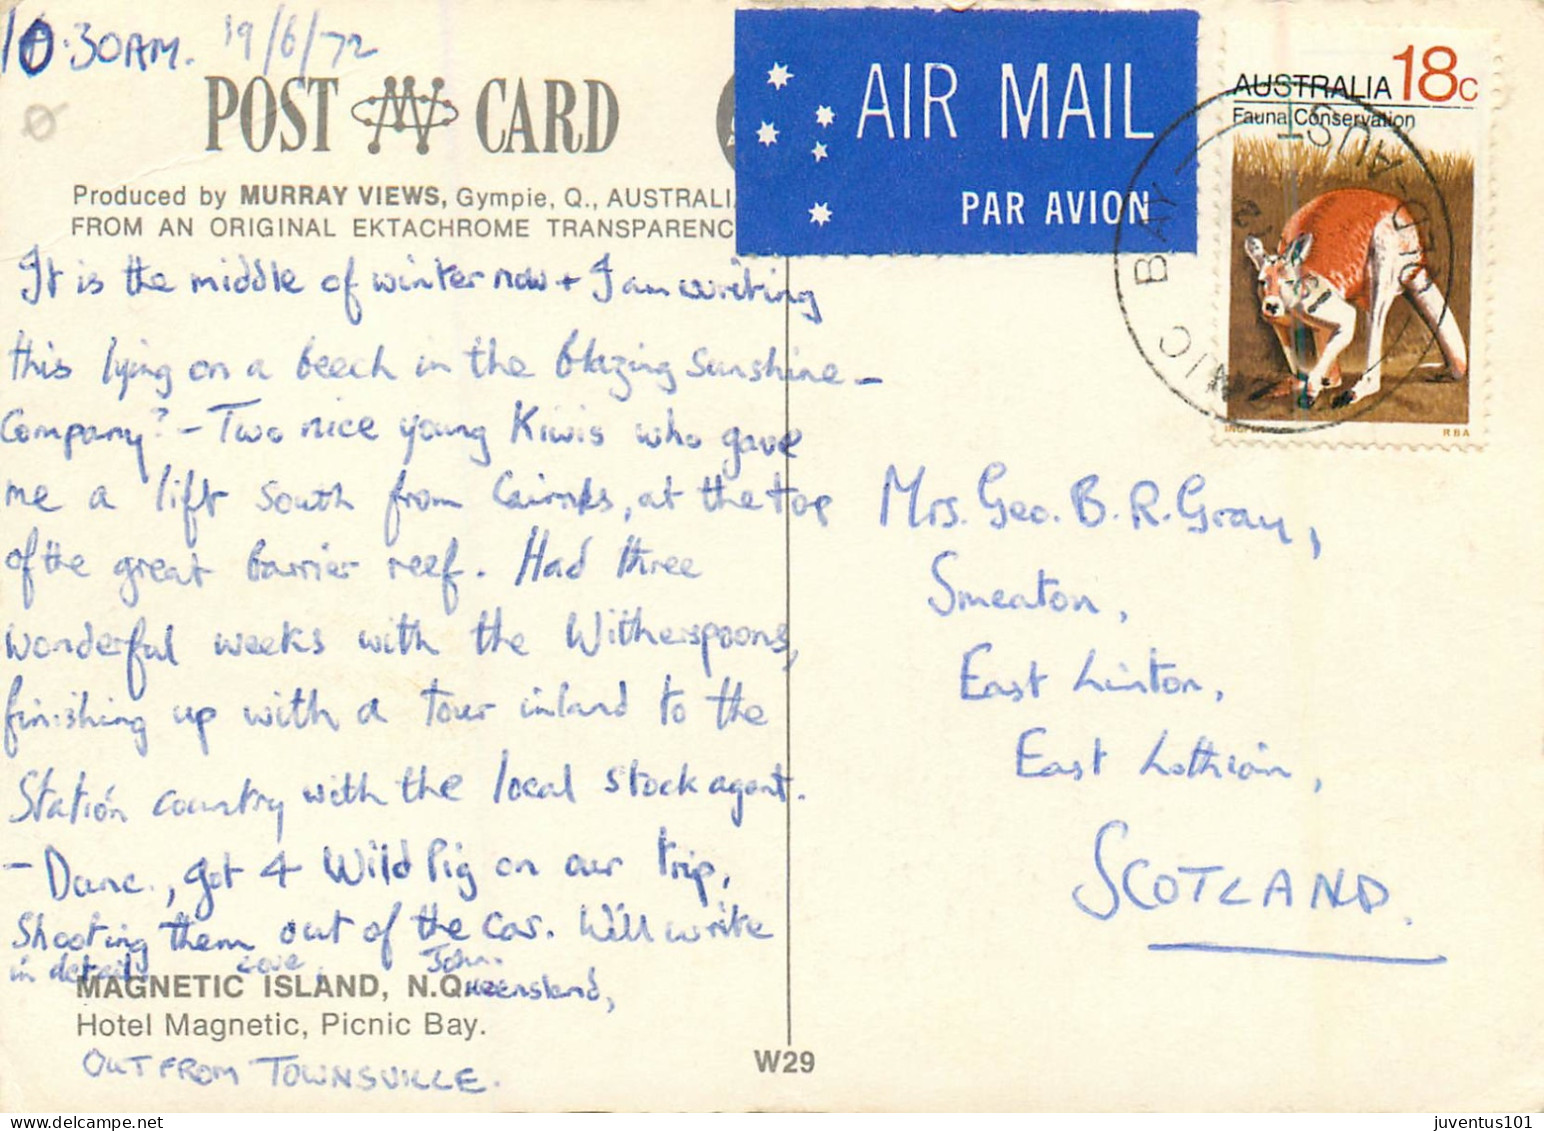 10.30AM. 19/6/72
POST CARD
Produced by MURRAY VIEWS, Gympie, Q., AUSTRALI
FROM AN ORIGINAL EKTACHROME TRANSPARENC
AIR MAIL
PAR AVION
AUSTRALIA 18c
Fauna Conservation
RBA
PICNIC BAY
QLD-AUST
It is the middle of winter now + I am writing
this lying on a beech in the blazing sunshine –
Company? – Two nice young Kiwis who gave
me a lift south from Cairns, at the top
of the great barrier reef. Had three
wonderful weeks with the Witherspoons,
finishing up with a tour inland to the
Station country with the local stock agent.
– Dave., got 4 Wild Pig on our trip,
shooting them out of the car. Will write
in detail. love, John.
MAGNETIC ISLAND, N.Queensland,
Hotel Magnetic, Picnic Bay.
OUT FROM TOWNSVILLE.
W29
Mrs. Geo. B. R. Gray,
Smeaton,
East Linton,
East Lothian,
SCOTLAND.
juventus101